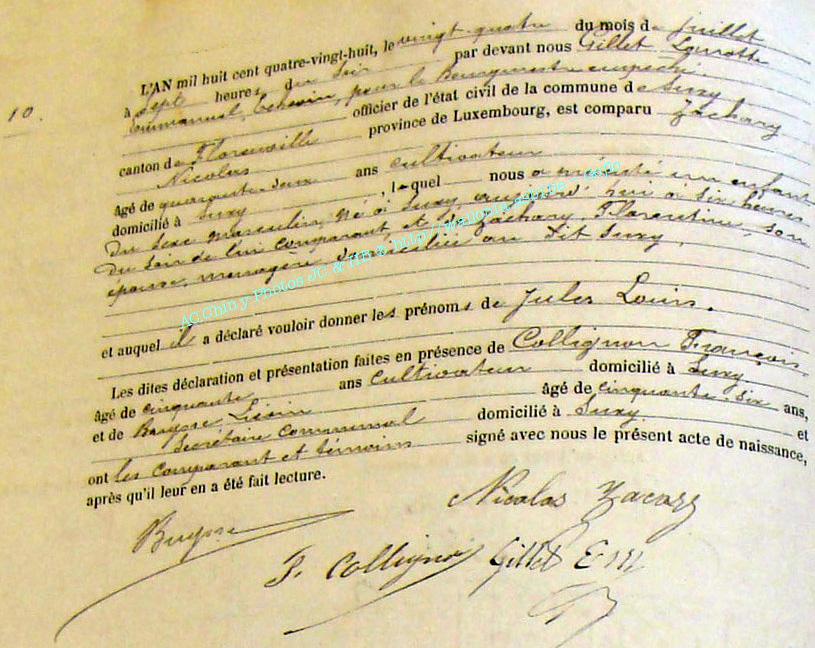 10.
L'AN mil huit cent quatre-vingt-huit, le vingt quatre du mois de juillet
à sept heures du soir par devant nous Gillet Lorrette
Emmanuel, Echevin, pour le Bourgmestre empêché.
officier de l'état civil de la commune de Suxy
canton de Florenville province de Luxembourg, est comparu Zachary
Nicolas
âgé de quarante-deux ans cultivateur
domicilié à Suxy, lequel nous a présenté un enfant
du sexe masculin, né à Suxy, aujourd'hui à six heures
du soir de lui comparant, et de Zachary, Florentine, son
épouse, ménagère, domiciliée au dit Suxy.
et auquel il a déclaré vouloir donner les prénoms de Jules Louis.
Les dites déclaration et présentation faites en présence de Collignon François
âgé de cinquante ans cultivateur domicilié à Suxy
et de Buysse âgé de cinquante-six ans,
Secrétaire Communal domicilié à Suxy et
ont les comparant et témoins signé avec nous le présent acte de naissance,
après qu'il leur en a été fait lecture.
Nicolas Zacary
Buysse
F. Collignon Gillet Em
AC Chiny Photos JC & HB & http://